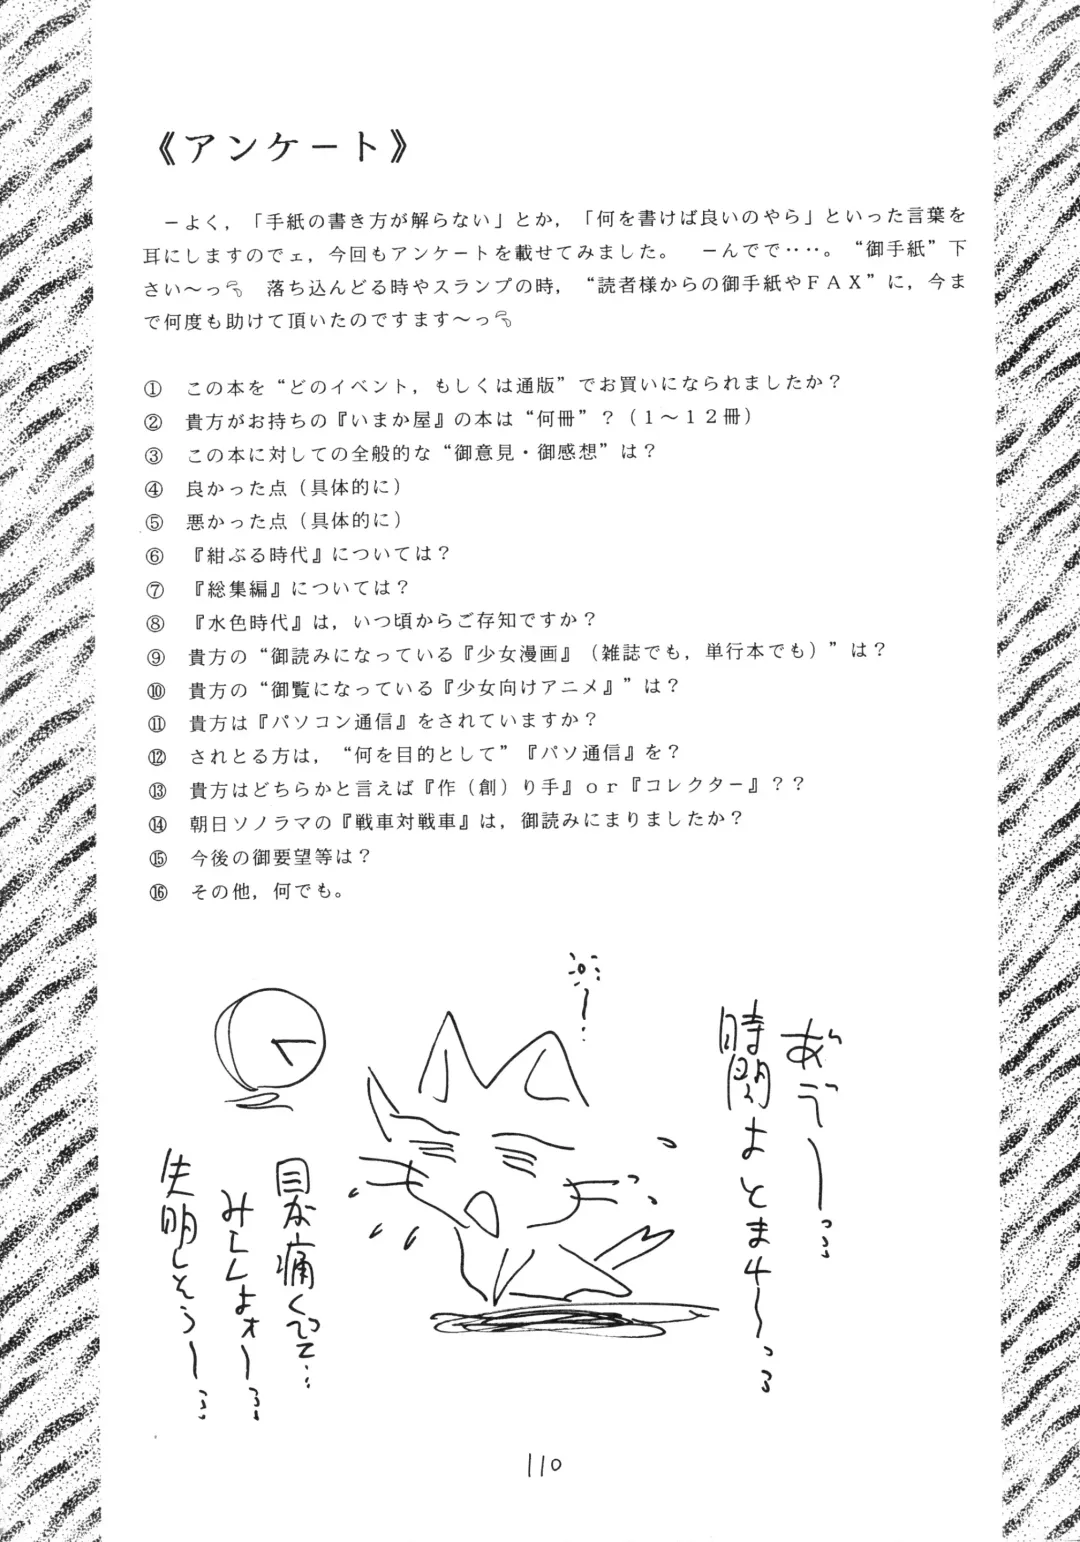 《アンケート》
－よく，「手紙の書き方が解らない」とか，「何を書けば良いのやら」といった言葉を
耳にしますのでェ，今回もアンケートを載せてみました。　－んでで‥‥。“御手紙”下
さい～っ　落ち込んどる時やスランプの時，“読者様からの御手紙やＦＡＸ”に，今ま
で何度も助けて頂いたのですます～っ
①　この本を“どのイベント，もしくは通版”でお買いになられましたか？
②　貴方がお持ちの『いまか屋』の本は“何冊”？（１～１２冊）
③　この本に対しての全般的な“御意見・御感想”は？
④　良かった点（具体的に）
⑤　悪かった点（具体的に）
⑥　『紺ぶる時代』については？
⑦　『総集編』については？
⑧　『水色時代』は，いつ頃からご存知ですか？
⑨　貴方の“御読みになっている『少女漫画』（雑誌でも，単行本でも）”は？
⑩　貴方の“御覧になっている『少女向けアニメ』”は？
⑪　貴方は『パソコン通信』をされていますか？
⑫　されとる方は，“何を目的として”『パソ通信』を？
⑬　貴方はどちらかと言えば『作（創）り手』ｏｒ『コレクター』？？
⑭　朝日ソノラマの『戦車対戦車』は，御読みにまりましたか？
⑮　今後の御要望等は？
⑯　その他，何でも。
あ゛う゛ー…
時間よとまれ～っ
目が痛くって…
失明しそうー…
110